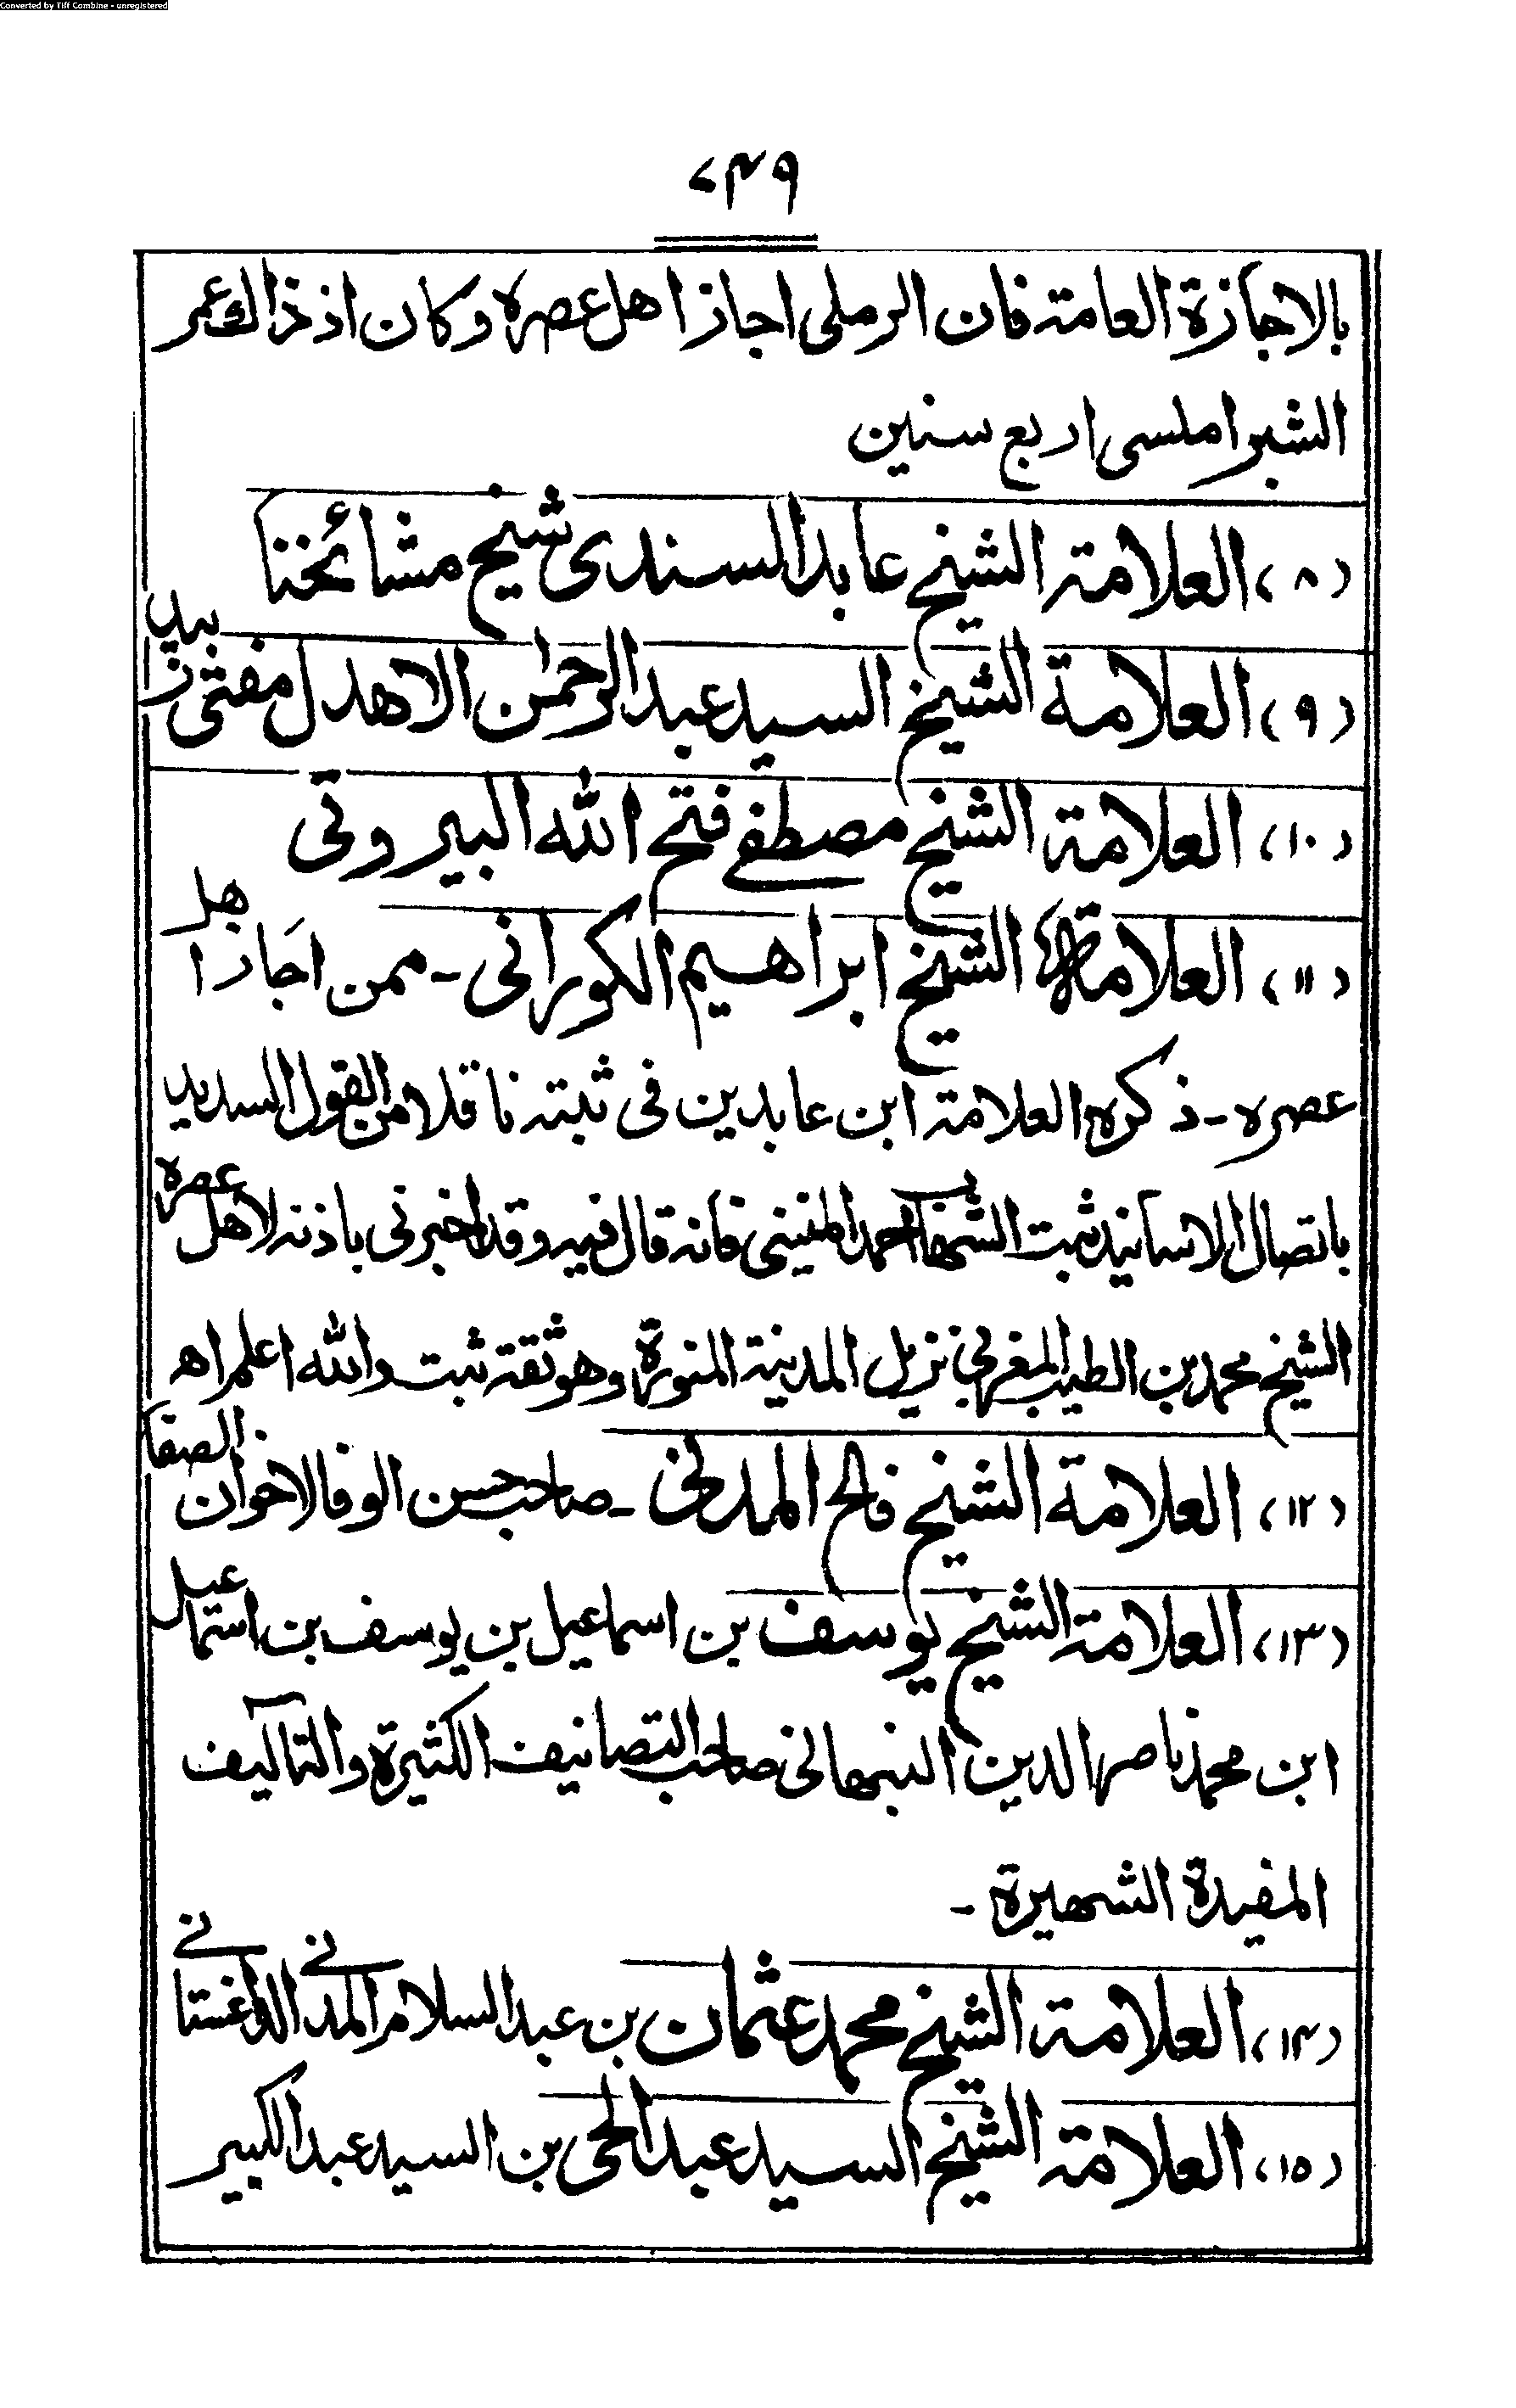 Converted by Tiff Combine - unregistered
۷۴۹
بالاجازة العامة فان الرملى اجاز اهل عصره وكان اذ ذاك عمر
الشبراملسى اربع سنين
(۸) العلامة الشيخ عابد السندى شيخ مشائخنا
(۹) العلامة الشيخ السيد عبد الرحمٰن الاهدل مفتى زبيد
(۱۰) العلامة الشيخ مصطفے فتح الله البيروتى
(۱۱) العلامة الشيخ ابراهيم الكورانى - ممن اجاز اهل
عصره - ذكره العلامة ابن عابدين فى ثبته ناقلا من القول السديد
باتصال الاسانيد ثبت الشهاب احمد المنينى فانه قال فيه وقد اخبرنى باذنه لاهل عصره
الشيخ محمد بن الطيب المغربي نزيل المدينة المنورة وهو ثقة ثبت والله اعلم اھ
(۱۲) العلامة الشيخ فالح المدنى - صاحب حسن الوفا لاخوان الصفا
(۱۳) العلامة الشيخ يوسف بن اسماعيل بن يوسف بن اسماعيل
ابن محمد ناصر الدين النبهانى صاحب التصانيف الكثيرة والتآليف
المفيدة الشهيرة -
(۱۴) العلامة الشيخ محمد عثمان بن عبد السلام المدنے الداغستانے
(۱۵) العلامة الشيخ السيد عبد الحى بن السيد عبد الكبير